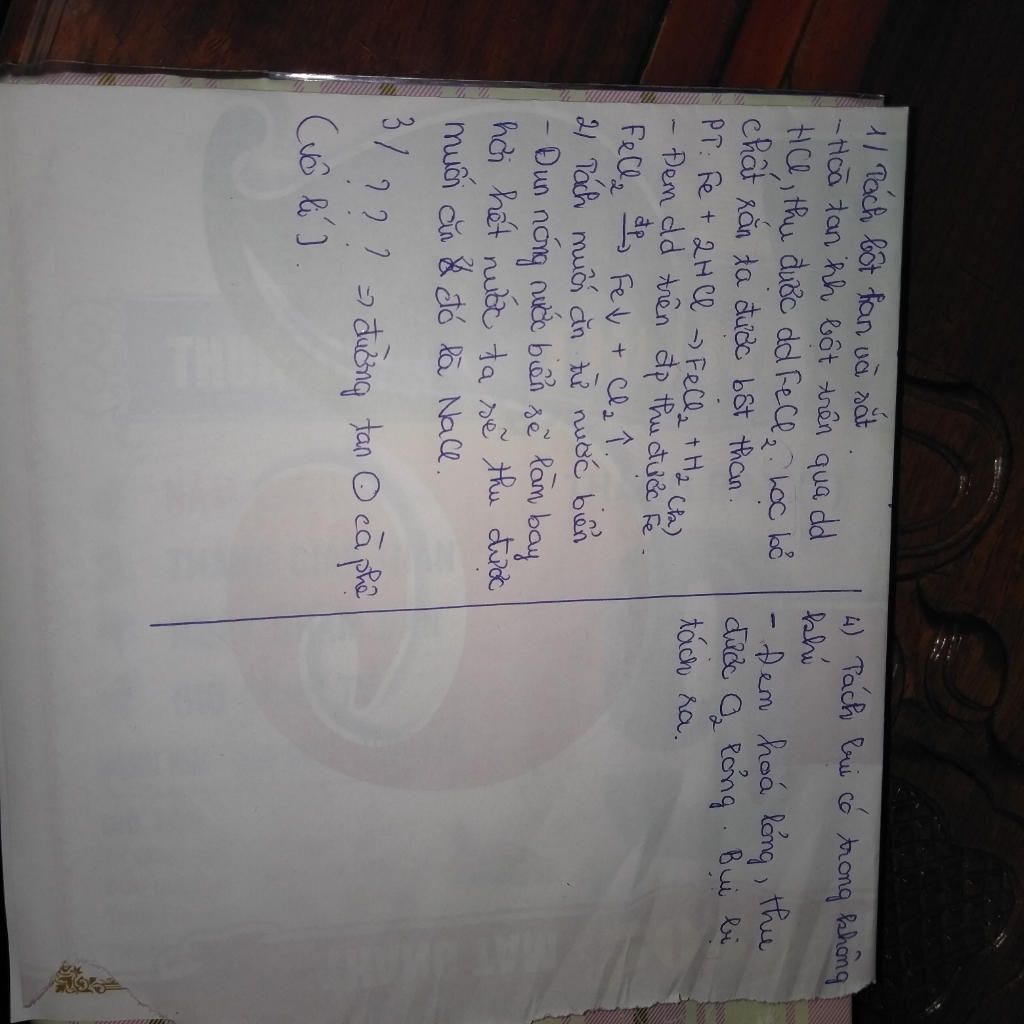 1) Tách bột than và sắt.
- Hoà tan hh bột trên qua dd
HCl, thu được dd FeCl2. Lọc bỏ
chất rắn ta được bột than.
PT: Fe + 2HCl → FeCl2 + H2 (k)
- Đem dd trên đp thu được Fe.
FeCl2 đp→ Fe↓ + Cl2↑.
2) Tách muối ăn từ nước biển
- Đun nóng nước biển sẽ làm bay
hơi hết nước ta sẽ thu được
muối ăn đó là NaCl.
3) ? ? ? ⇒ đường tan O cà phê
(vô lí).
4) Tách bụi có trong không
khí
- Đem hoá lỏng, thu
được O2 lỏng. Bụi bị
tách ra.